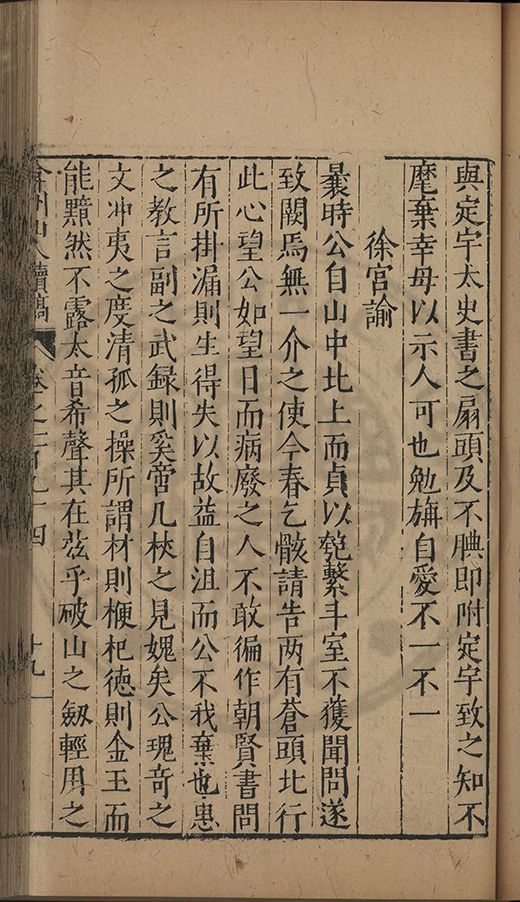 與定宇太史書之扇頭及不腆即附定宇致之知不
麾棄幸毋以示人可也勉旃自愛不一不一
徐宮諭
曩時公自山中北上而貞以匏繫斗室不獲聞問遂
致闕焉無一介之使今春乞骸請告两有蒼頭北行
此心望公如望日而病廢之人不敢徧作朝賢書問
有所掛漏則生得失以故益自沮而公不我棄也惠
之教言副之武録則奚啻几杖之見媿矣公瑰奇之
文冲夷之度清孤之操所謂材則楩杞徳則金玉而
能黯然不露太音希聲其在兹乎破山之劔輕用之
弇州山人續稿
卷之一百九十四
十九